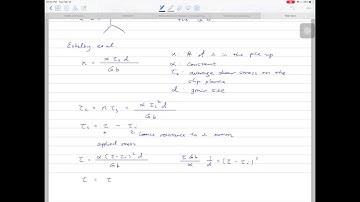 Eshelby et al
n = α τs d / Gb
n: # of ⊥ in the pile up
α: constant
τs: average shear stress on the slip plane
d: grain size
τc = n τs = α τs² d / Gb
τs = τ - τi
lattice resistance to ⊥ motion
applied stress
τ = α (τ - τi)² d / Gb
τ Gb / α 1/d = (τ - τi)²
τ = τ